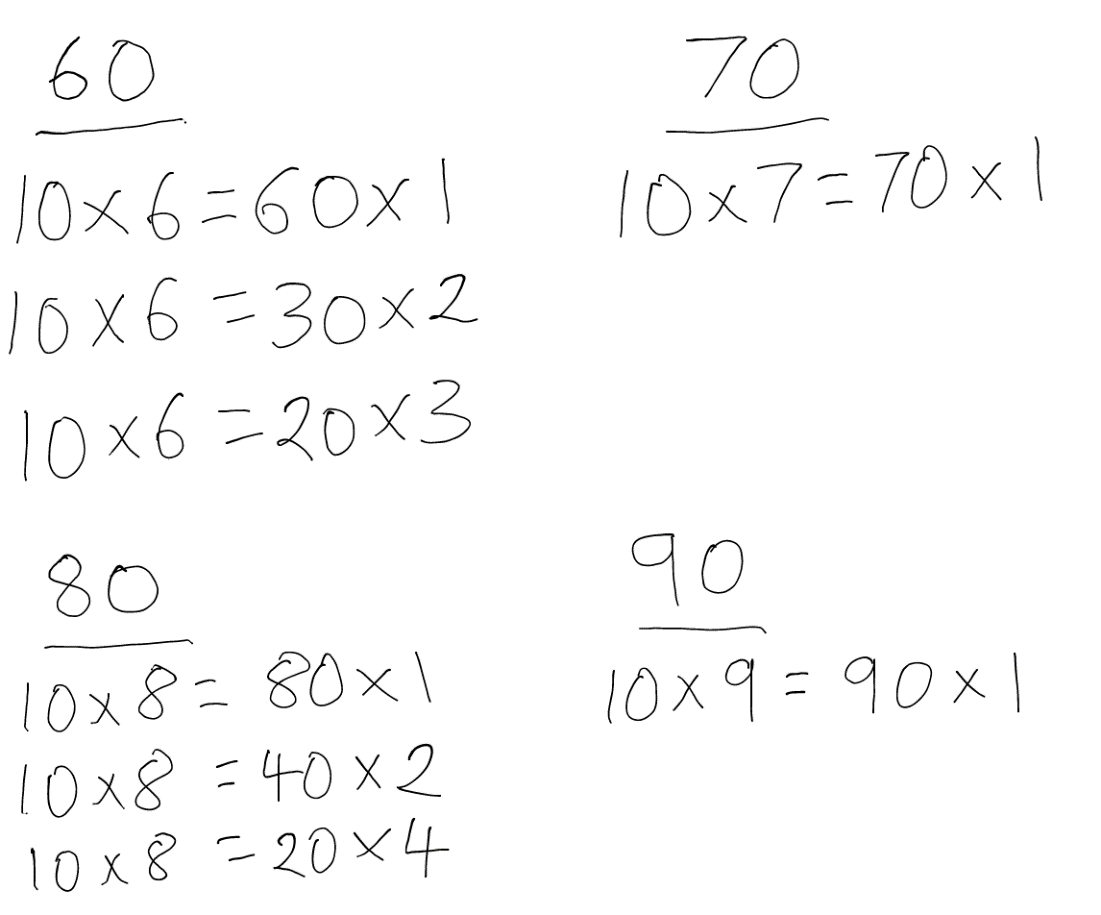 60
10×6=60×1
10×6=30×2
10×6=20×3
70
10×7=70×1
80
10×8=80×1
10×8=40×2
10×8=20×4
90
10×9=90×1